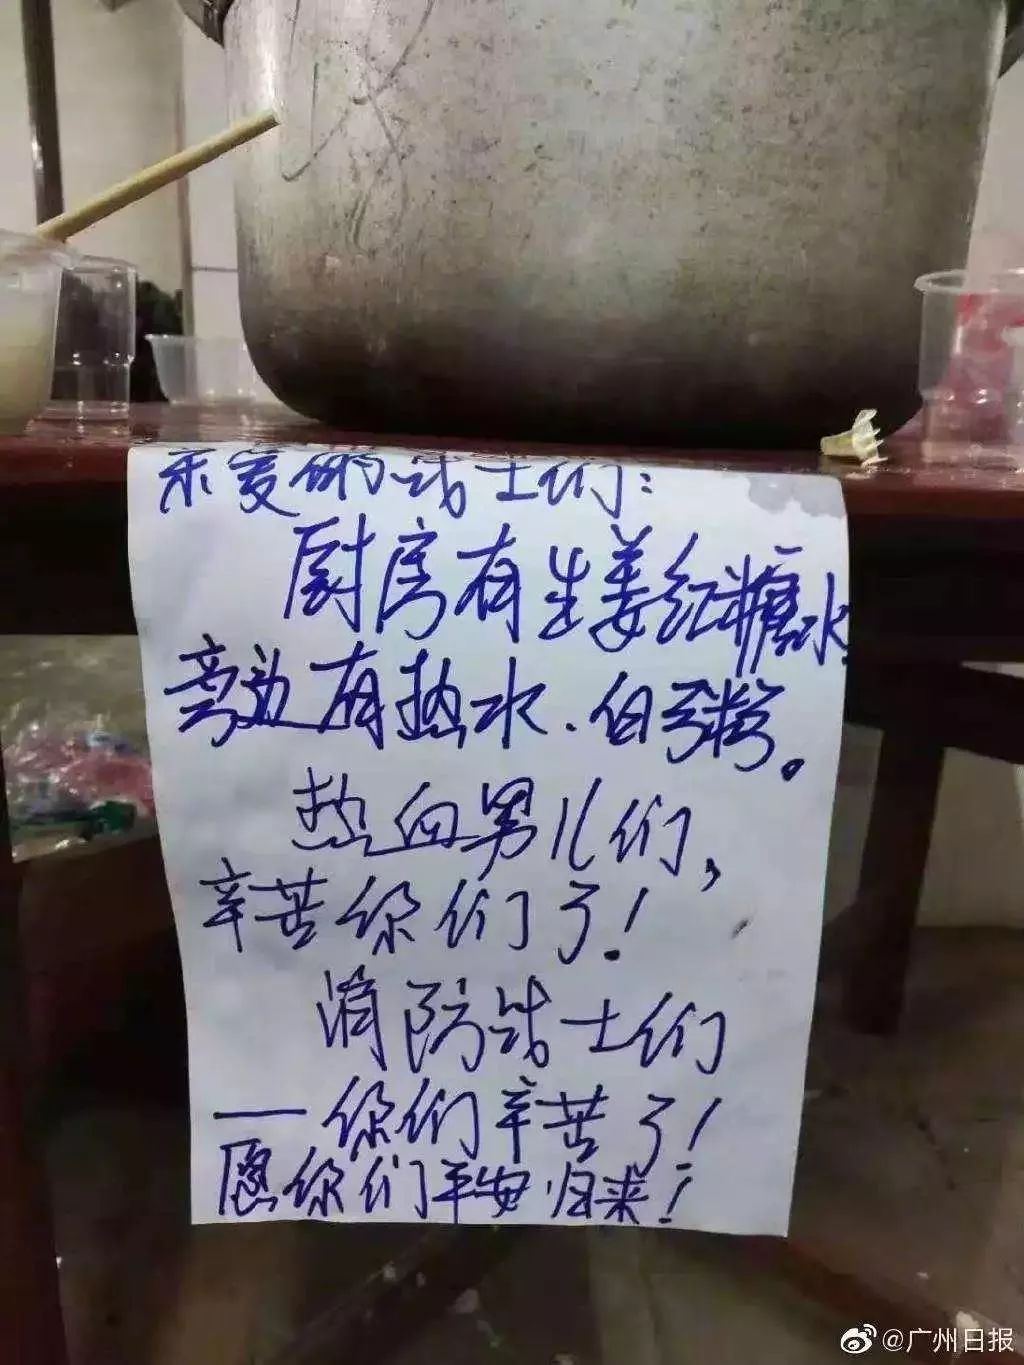 亲爱的战士们：
厨房有生姜红糖水，
旁边有热水、白粥。
热血男儿们，
辛苦你们了！
消防战士们
——你们辛苦了！
愿你们平安归来！
@广州日报